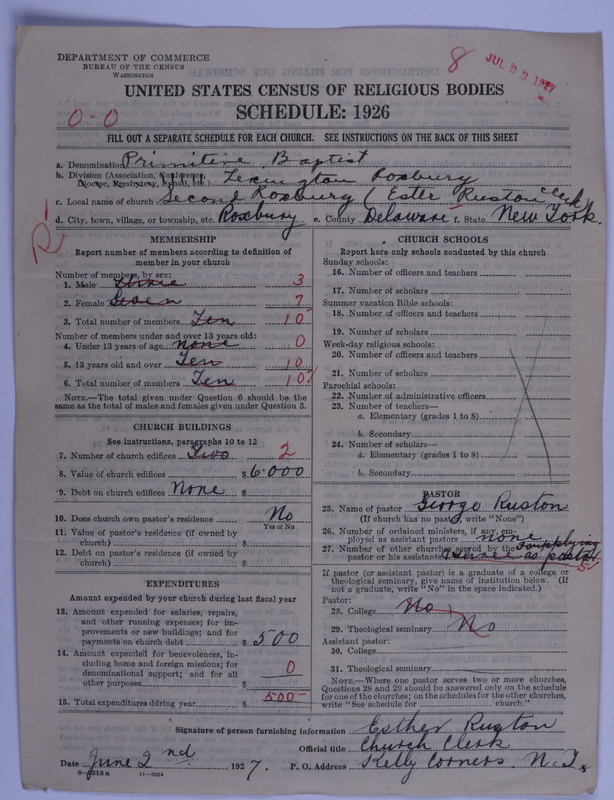 DEPARTMENT OF COMMERCE
BUREAU OF THE CENSUS
WASHINGTON
8
JUL 1927
UNITED STATES CENSUS OF RELIGIOUS BODIES
SCHEDULE: 1926
0-0
FILL OUT A SEPARATE SCHEDULE FOR EACH CHURCH. SEE INSTRUCTIONS ON THE BACK OF THIS SHEET
a. Denomination Primitive Baptist
b. Division (Association, Conference, Diocese, Presbytery, Synod, etc.) Lexington Roxbury
c. Local name of church Second Roxbury (Ester Ruston Clerk
d. City, town, village, or township, etc. Roxbury e. County Delaware f. State New York.
R
MEMBERSHIP
Report number of members according to definition of
member in your church
Number of members, by sex:
1. Male three 3
2. Female Seven 7
3. Total number of members Ten 10
Number of members under and over 13 years old:
4. Under 13 years of age none 0
5. 13 years old and over Ten 10
6. Total number of members Ten 10
NOTE.—The total given under Question 6 should be the
same as the total of males and females given under Question 3.
CHURCH BUILDINGS
See instructions, paragraphs 10 to 12
7. Number of church edifices Two 2
8. Value of church edifices $ 6000
9. Debt on church edifices None $
10. Does church own pastor's residence No
Yes or No
11. Value of pastor's residence (if owned by
church) $
12. Debt on pastor's residence (if owned by
church) $
EXPENDITURES
Amount expended by your church during last fiscal year
13. Amount expended for salaries, repairs,
and other running expenses; for im-
provements or new buildings; and for
payments on church debt $ 500
14. Amount expended for benevolences, in-
cluding home and foreign missions; for
denominational support; and for all
other purposes $ 0
15. Total expenditures during year $ 500
CHURCH SCHOOLS
Report here only schools conducted by this church
Sunday schools:
16. Number of officers and teachers
17. Number of scholars
Summer vacation Bible schools:
18. Number of officers and teachers
19. Number of scholars
Week-day religious schools:
20. Number of officers and teachers
21. Number of scholars
Parochial schools:
22. Number of administrative officers
23. Number of teachers—
a. Elementary (grades 1 to 8)
b. Secondary
24. Number of scholars—
a. Elementary (grades 1 to 8)
b. Secondary
PASTOR
25. Name of pastor George Ruston
(If church has no pastor, write "None")
26. Number of ordained ministers, if any, em-
ployed as assistant pastors none
27. Number of other churches served by the supplying
pastor or his assistants three as pastor
5
If pastor (or assistant pastor) is a graduate of a college or
theological seminary, give name of institution below. (If
not a graduate, write "No" in the space indicated.)
Pastor:
28. College No
29. Theological seminary No
Assistant pastor:
30. College
31. Theological seminary
NOTE.—Where one pastor serves two or more churches,
Questions 28 and 29 should be answered only on the schedule
for one of the churches; on the schedules for the other churches,
write "See schedule for church."
Signature of person furnishing information Esther Ruston
Official title Church Clerk
Date June 2nd 1927. P. O. Address Kelly Corners, N.Y.
11-9564